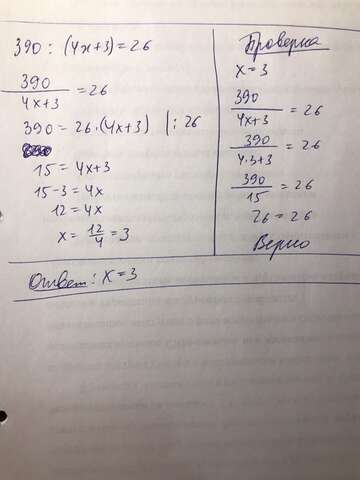 390 : (4x+3) = 26
390/(4x+3) = 26
390 = 26·(4x+3) |: 26
15 = 4x+3
15-3 = 4x
12 = 4x
x = 12/4 = 3
Проверка
x = 3
390/(4x+3) = 26
390/(4·3+3) = 26
390/15 = 26
26 = 26
Верно
Ответ: x = 3